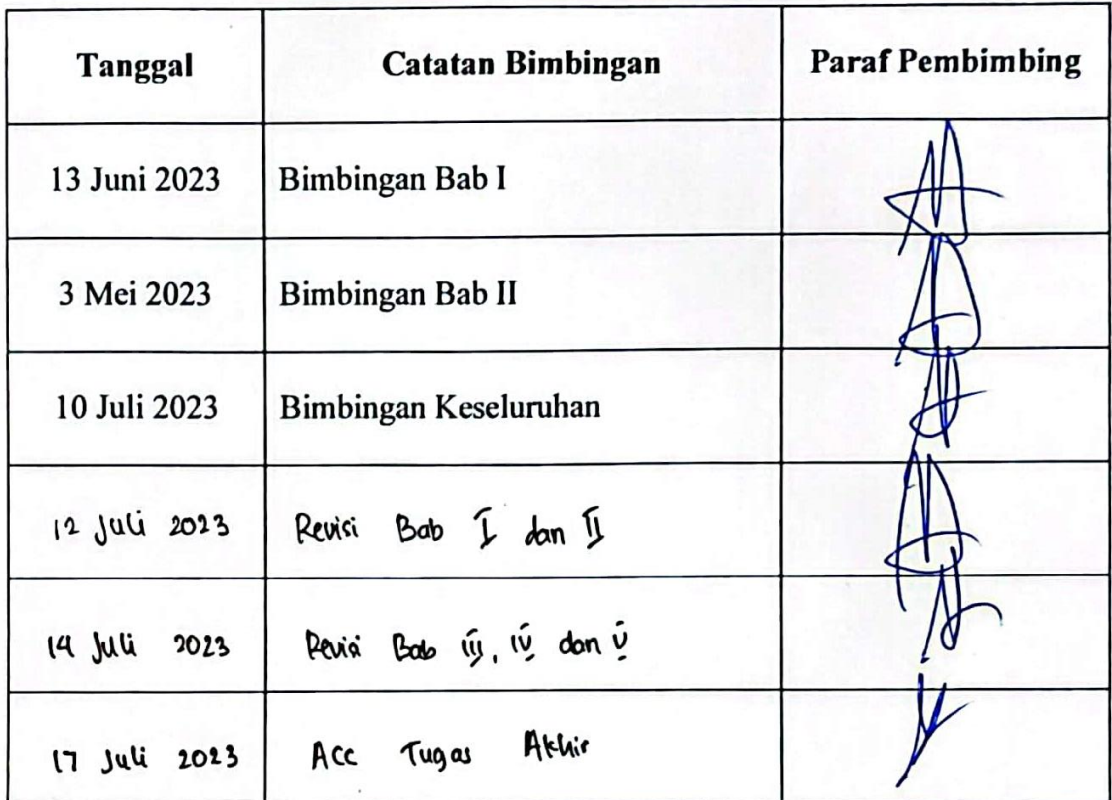 Tanggal Catatan Bimbingan Paraf Pembimbing
13 Juni 2023 Bimbingan Bab I
3 Mei 2023 Bimbingan Bab II
10 Juli 2023 Bimbingan Keseluruhan
12 Juli 2023 Revisi Bab I dan II
14 Juli 2023 Revisi Bab III, IV dan V
17 Juli 2023 Acc Tugas Akhir